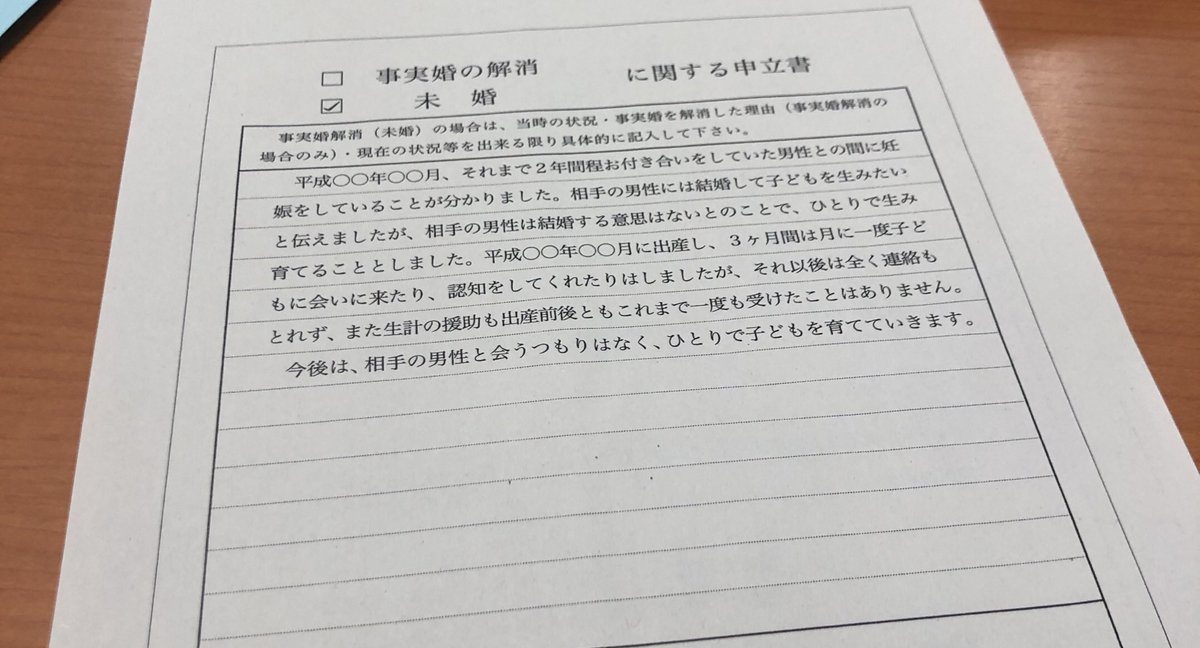 □ 事実婚の解消 に関する申立書
☑ 未 婚
事実婚解消（未婚）の場合は、当時の状況・事実婚を解消した理由（事実婚解消の
場合のみ）・現在の状況等を出来る限り具体的に記入して下さい。
平成〇〇年〇〇月、それまで２年間程お付き合いをしていた男性との間に妊
娠をしていることが分かりました。相手の男性には結婚して子どもを生みたい
と伝えましたが、相手の男性は結婚する意思はないとのことで、ひとりで生み
育てることとしました。平成〇〇年〇〇月に出産し、３ヶ月間は月に一度子ど
もに会いに来たり、認知をしてくれたりはしましたが、それ以後は全く連絡も
とれず、また生計の援助も出産前後ともこれまで一度も受けたことはありません。
今後は、相手の男性と会うつもりはなく、ひとりで子どもを育てていきます。